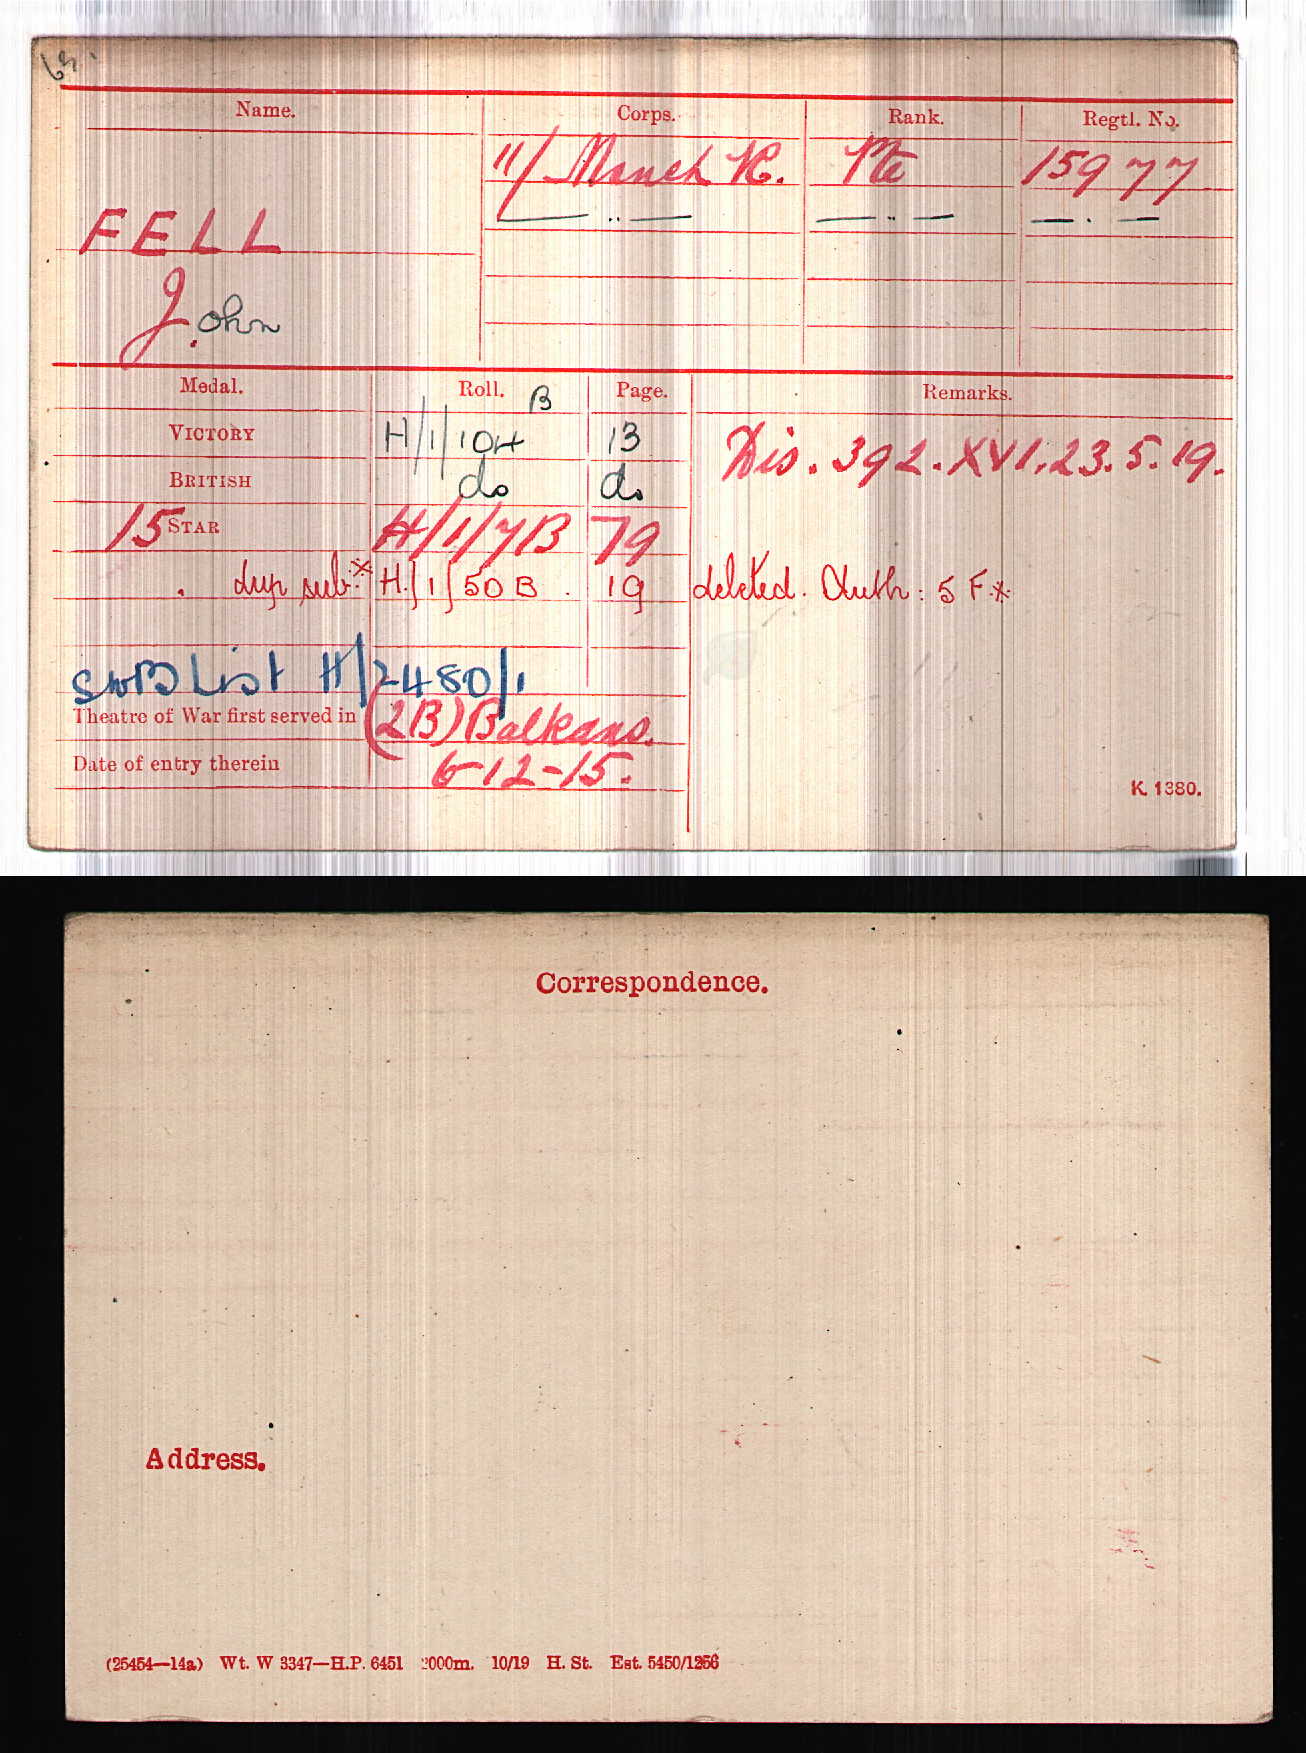 Name. Corps. Rank. Regtl. No.
11/ Manch R. Pte 15977
— „ — — „ — — . —
FELL
John
Medal. Roll. Page. Remarks.
B
VICTORY H/1/104 13
Dis. 392. XVI. 23.5.19.
BRITISH do do
15 STAR H/1/7B 79
dup sub.* H/1/50B. 19 deleted. Auth: 5 F.*
SWB List H/2480/1
Theatre of War first served in (2B) Balkans.
Date of entry therein 6-12-15.
K. 1380.
Correspondence.
Address.
(25454—14a) Wt. W 3347—H.P. 6451 2000m. 10/19 H. St. Est. 5450/1256